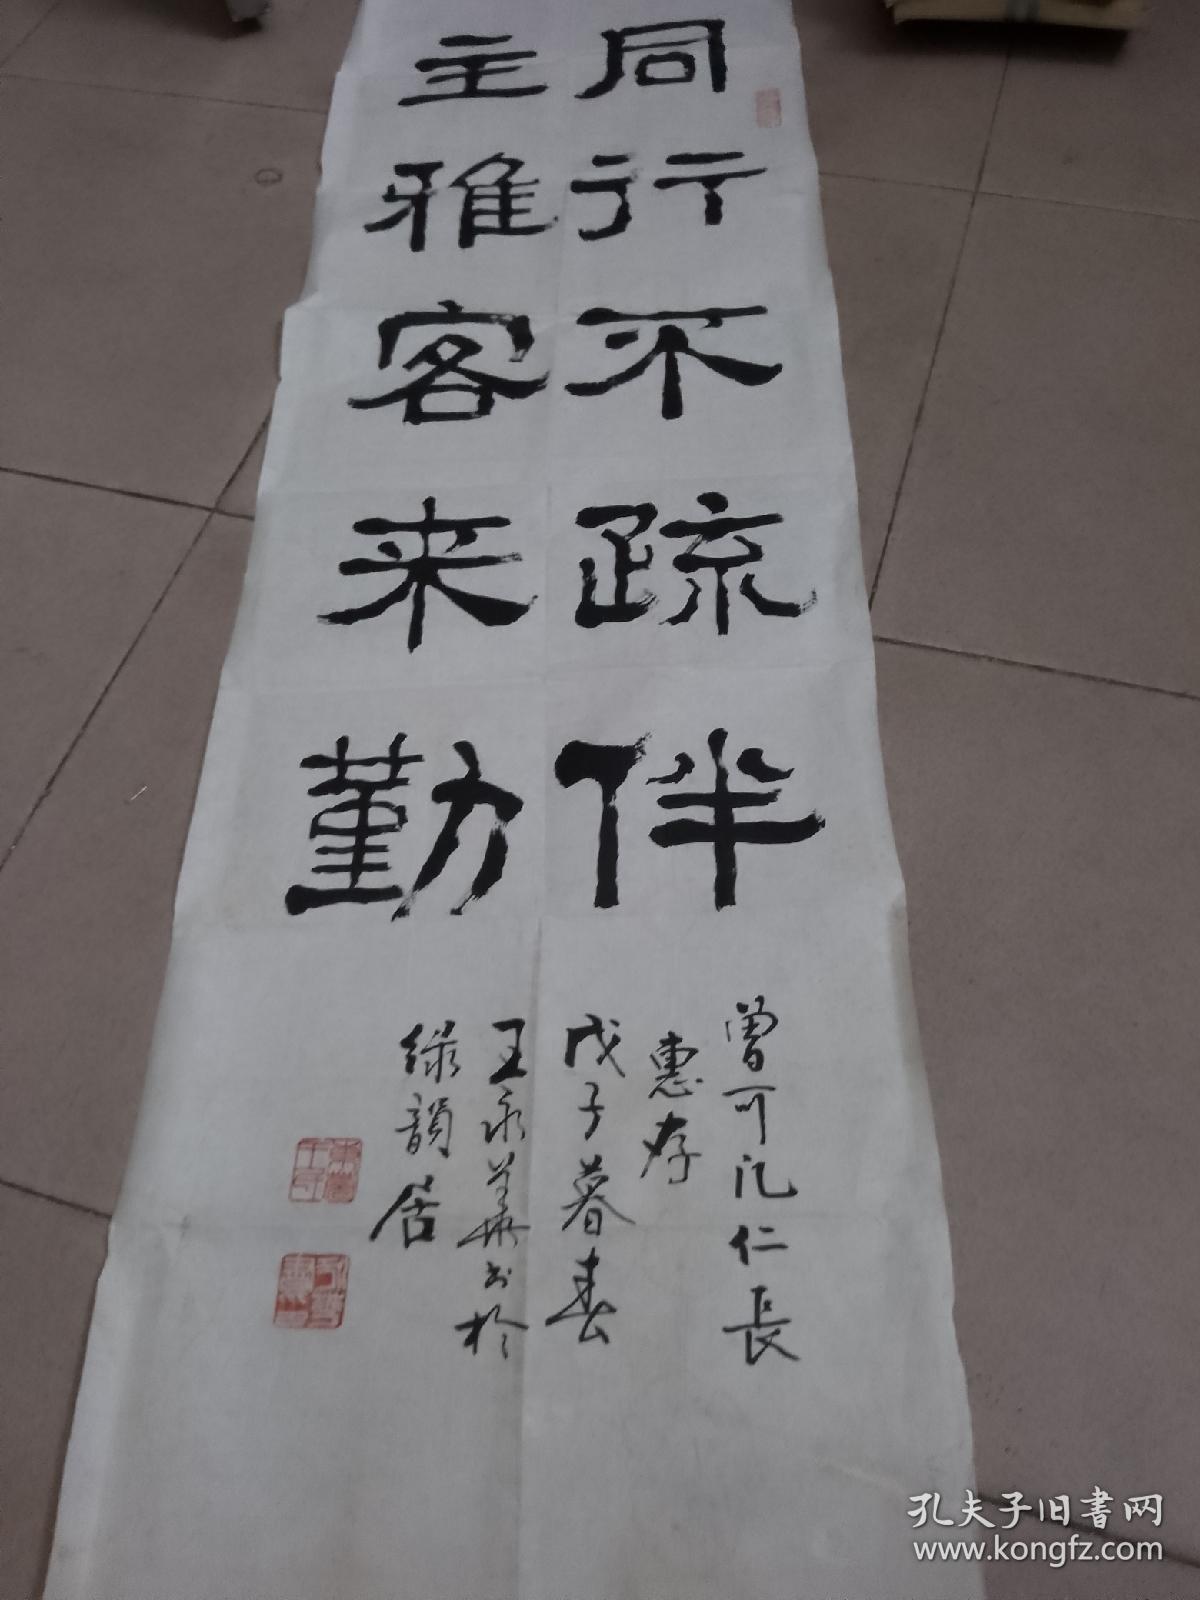 同行不疏伴
主雅客来勤
曾可汜仁長
惠存
戊子暮春
王永華书於
绿韻居
孔夫子旧書网
www.kongfz.com